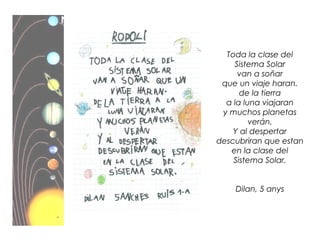 RODOLÍ
TODA LA CLASE DEL
SISTEMA SOLAR
VAN A SOÑAR QUE UN
VIAJE HARAN.
DE LA TIERRA A LA
LUNA VIAJARAN
Y MUCHOS PLANETAS
VERÁN
Y AL DESPERTAR
DESCUBRIRAN QUE ESTAN
EN LA CLASE DEL
SISTEMA SOLAR.
DILAN SANCHES RUIS 1-A
Toda la clase del
Sistema Solar
van a soñar
que un viaje haran.
de la tierra
a la luna viajaran
y muchos planetas
verán.
Y al despertar
descubriran que estan
en la clase del
Sistema Solar.
Dilan, 5 anys